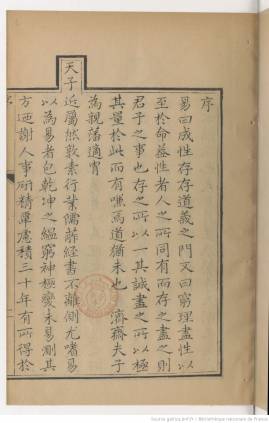 序
易曰成性存存道義之門又曰窮理盡性以
至於命葢性者人之所同有而存之盡之則
君子之事也存之所以一其誠盡之所以極
其量於此而有嗛焉道猶未也 濟齋夫子
為親藩適冑
天子近屬然敦素行業儒薜經書不離側尤嗜易
以為易者包乾坤之緼窮神極變未易測其
方迺謝人事研精覃慮積三十年有所得於
Source gallica.bnf.fr / Bibliothèque nationale de France